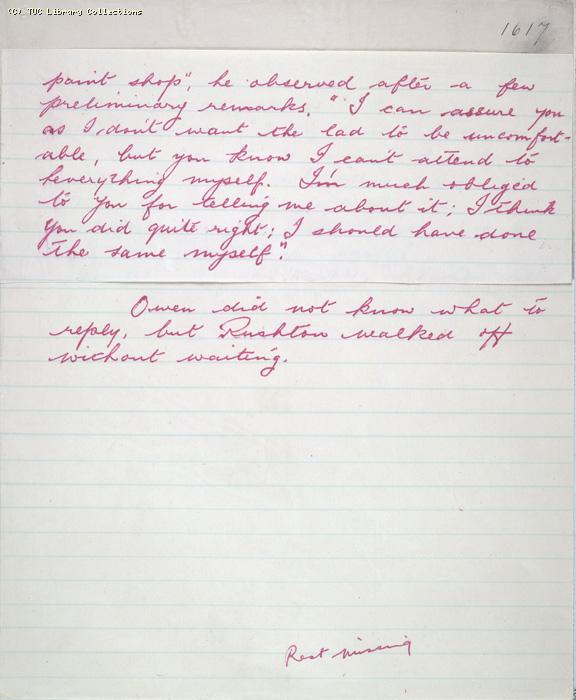 (C) TUC Library Collections
1617
paint shop", he observed after a few
preliminary remarks. "I can assure you
as I don't want the lad to be uncomfort-
able, but you know I can't attend to
heverything myself. I'm much obliged
to you for telling me about it; I think
you did quite right; I should have done
the same myself".
Owen did not know what to
reply, but Rushton walked off
without waiting.
Rest missing